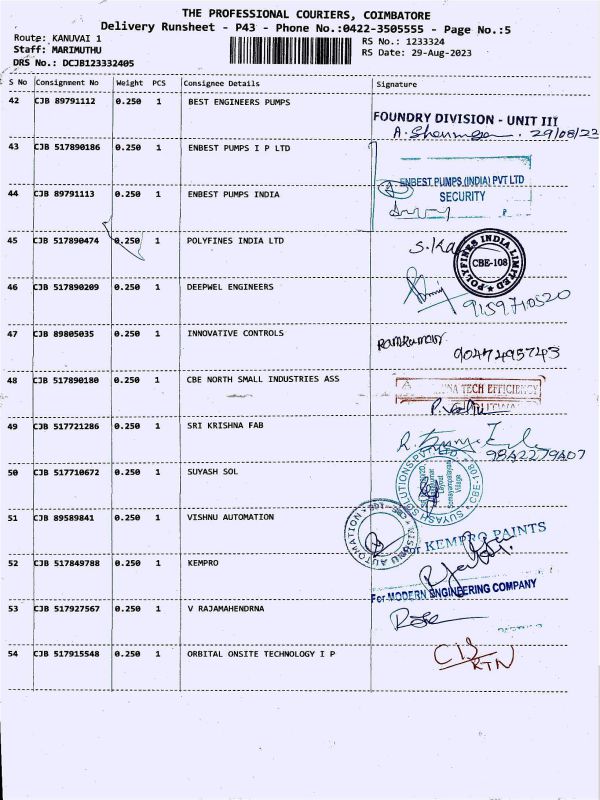 THE PROFESSIONAL COURIERS, COIMBATORE
Delivery Runsheet - P43 - Phone No.:0422-3505555 - Page No.:5
Route: KANUVAI 1
RS No.: 1233324
Staff: MARIMUTHU
RS Date: 29-Aug-2023
DRS No.: DCJB123332405
S No Consignment No Weight PCS Consignee Details Signature
42 CJB 89791112 0.250 1 BEST ENGINEERS PUMPS
FOUNDRY DIVISION - UNIT III
29/08/23
43 CJB 517890186 0.250 1 ENBEST PUMPS I P LTD
ENBEST PUMPS (INDIA) PVT LTD
SECURITY
44 CJB 89791113 0.250 1 ENBEST PUMPS INDIA
45 CJB 517890474 0.250 1 POLYFINES INDIA LTD
POLYFINES INDIA LIMITED
CBE-108
46 CJB 517890209 0.250 1 DEEPWEL ENGINEERS
9159710520
47 CJB 89805035 0.250 1 INNOVATIVE CONTROLS
Ramkumar
9047495743
48 CJB 517890180 0.250 1 CBE NORTH SMALL INDUSTRIES ASS
TECH EFFICIENCY
49 CJB 517721286 0.250 1 SRI KRISHNA FAB
9842279407
50 CJB 517710672 0.250 1 SUYASH SOL
SUYASH SOLUTIONS PVT LTD CBE-108
Somayampalayam
Village
51 CJB 89589841 0.250 1 VISHNU AUTOMATION
VISHNU AUTOMATION
For KEMPRO PAINTS
52 CJB 517849788 0.250 1 KEMPRO
For MODERN ENGINEERING COMPANY
53 CJB 517927567 0.250 1 V RAJAMAHENDRNA
54 CJB 517915548 0.250 1 ORBITAL ONSITE TECHNOLOGY I P
RTN